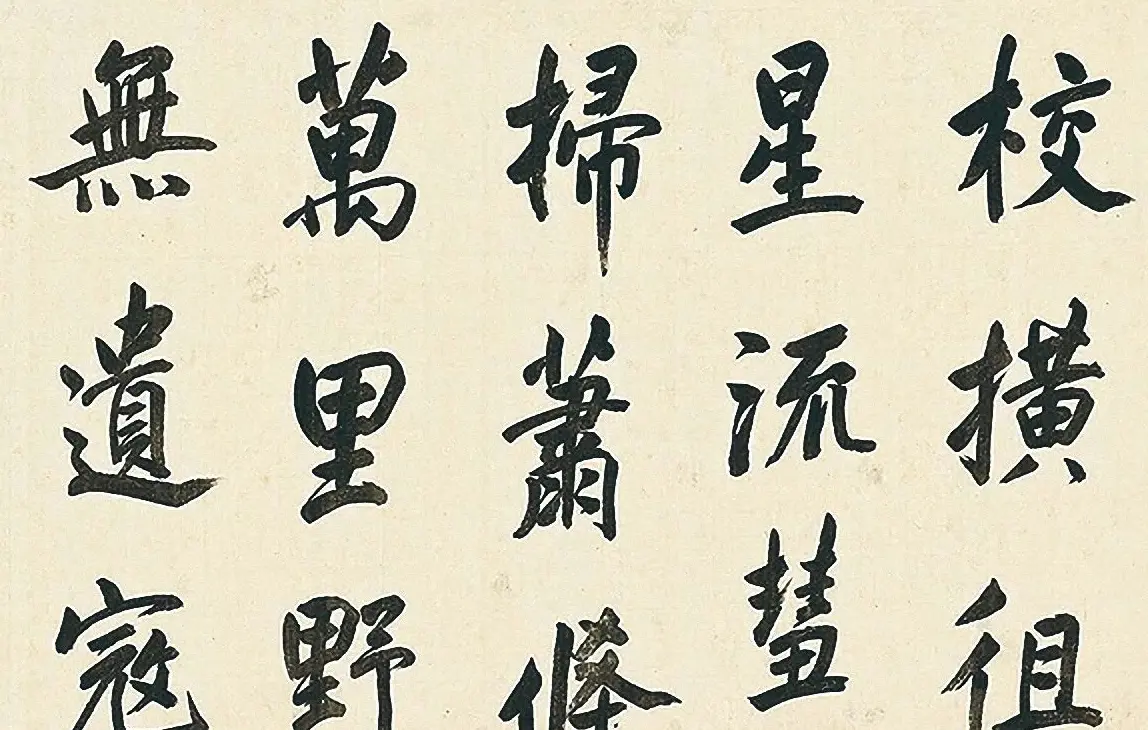 校橫徂
星流彗
掃蕭條
萬里野
無遺寇